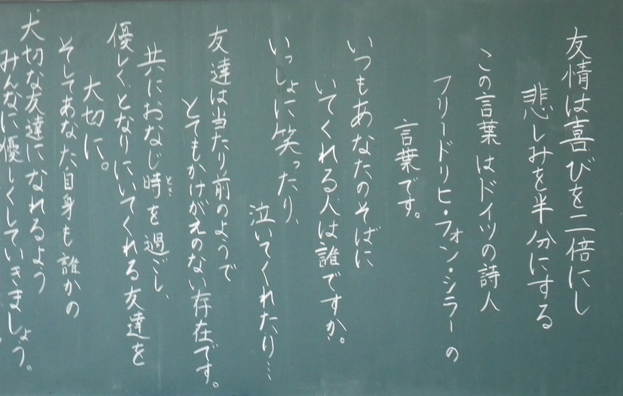 友情は喜びを二倍にし
悲しみを半分にする
この言葉はドイツの詩人
フリードリヒ・フォン・シラーの
言葉です。
いつもあなたのそばに
いてくれる人は誰ですか。
いっしょに笑ったり、
泣いてくれたり…
友達は当たり前のようで
とてもかけがえのない存在です。
共におなじ時(とき)を過ごし、
優しくとなりにいてくれる友達を
大切に。
そしてあなた自身も誰かの
大切な友達になれるよう
みんなに優しくしていきましょう。